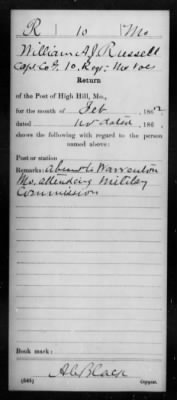 R | 10 | Mo
William A. J. Russell
Capt Co. F, 10. Reg; Mo Vols
Return
of the Post of High Hill, Mo.,
for the month of Feb , 1862
dated not dated , 186 .
shows the following with regard to the person
named above:
Post or station
Remarks: Absent to Warrenton
Mo, attending Military
Commission
Book mark:
Black
(545) Copyist.